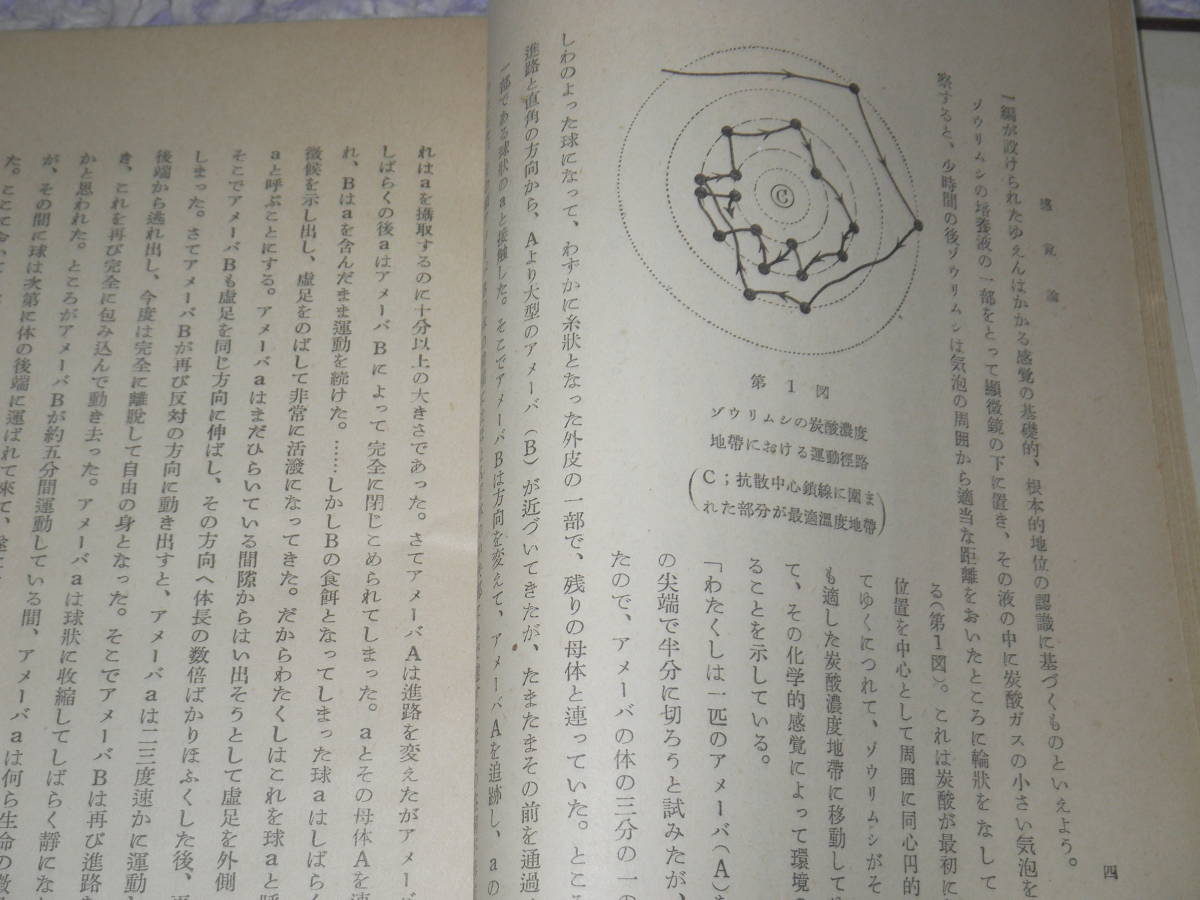 總說論
四
一編が設けられたゆえんはかかる感覚の基礎的、根本的地位の認識に基づくものといえよう。
ゾウリムシの培養液の一部をとって顕微鏡の下に置き、その液の中に炭酸ガスの小さい気泡を
察すると、少時間の後ゾウリムシは気泡の周囲から適当な距離をおいたところに輪狀をなして
る(第1図)。これは炭酸が最初に
位置を中心として周囲に同心円的
てゆくにつれて、ゾウリムシがそ
も適した炭酸濃度地帯に移動して
て、その化学的感覚によって環境の
ることを示している。
「わたくしは一匹のアメーバ(A)を
の尖端で半分に切ろうと試みたが、
たので、アメーバの体の三分の一の
C
第1図
ゾウリムシの炭酸濃度
地帶における運動徑路
(C;抗散中心鎖線に圍ま
れた部分が最適溫度地帶)
しわのよった球になって、わずかに糸狀となった外皮の一部で、残りの母体と連っていた。ところ
進路と直角の方向から、Aより大型のアメーバ(B)が近づいてきたが、たまたまその前を通過
一部である球狀のaと接触した。そこでアメーバBは方向を変えて、アメーバAを追跡し、aの
れはaを攝取するのに十分以上の大きさであった。さてアメーバAは進路を変えたがアメーバ
しばらくの後aはアメーバBによって完全に閉じこめられてしまった。aとその母体Aを連
れ、Bはaを含んだまま運動を続けた。……しかしBの食餌となってしまった球aはしばらく
徴候を示し出し、虚足をのばして非常に活潑になってきた。だからわたくしはこれを球aと呼
aと呼ぶことにする。アメーバaはまだひらいている間隙からはい出そうとして虚足を外側
そこでアメーバBも虚足を同じ方向に伸ばし、その方向へ体長の数倍ばかりほふくした後、再
しまった。さてアメーバBが再び反対の方向に動き出すと、アメーバaは二三度速かに運動し
後端から逃れ出し、今度は完全に離脫して自由の身となった。そこでアメーバBは再び進路を
き、これを再び完全に包み込んで動き去った。アメーバaは球狀に收縮してしばらく靜になっ
かと思われた。ところがアメーバBが約五分間運動している間、アメーバaは何ら生命の徴
が、その間に球は次第に体の後端に運ばれて来て、遂に
た。